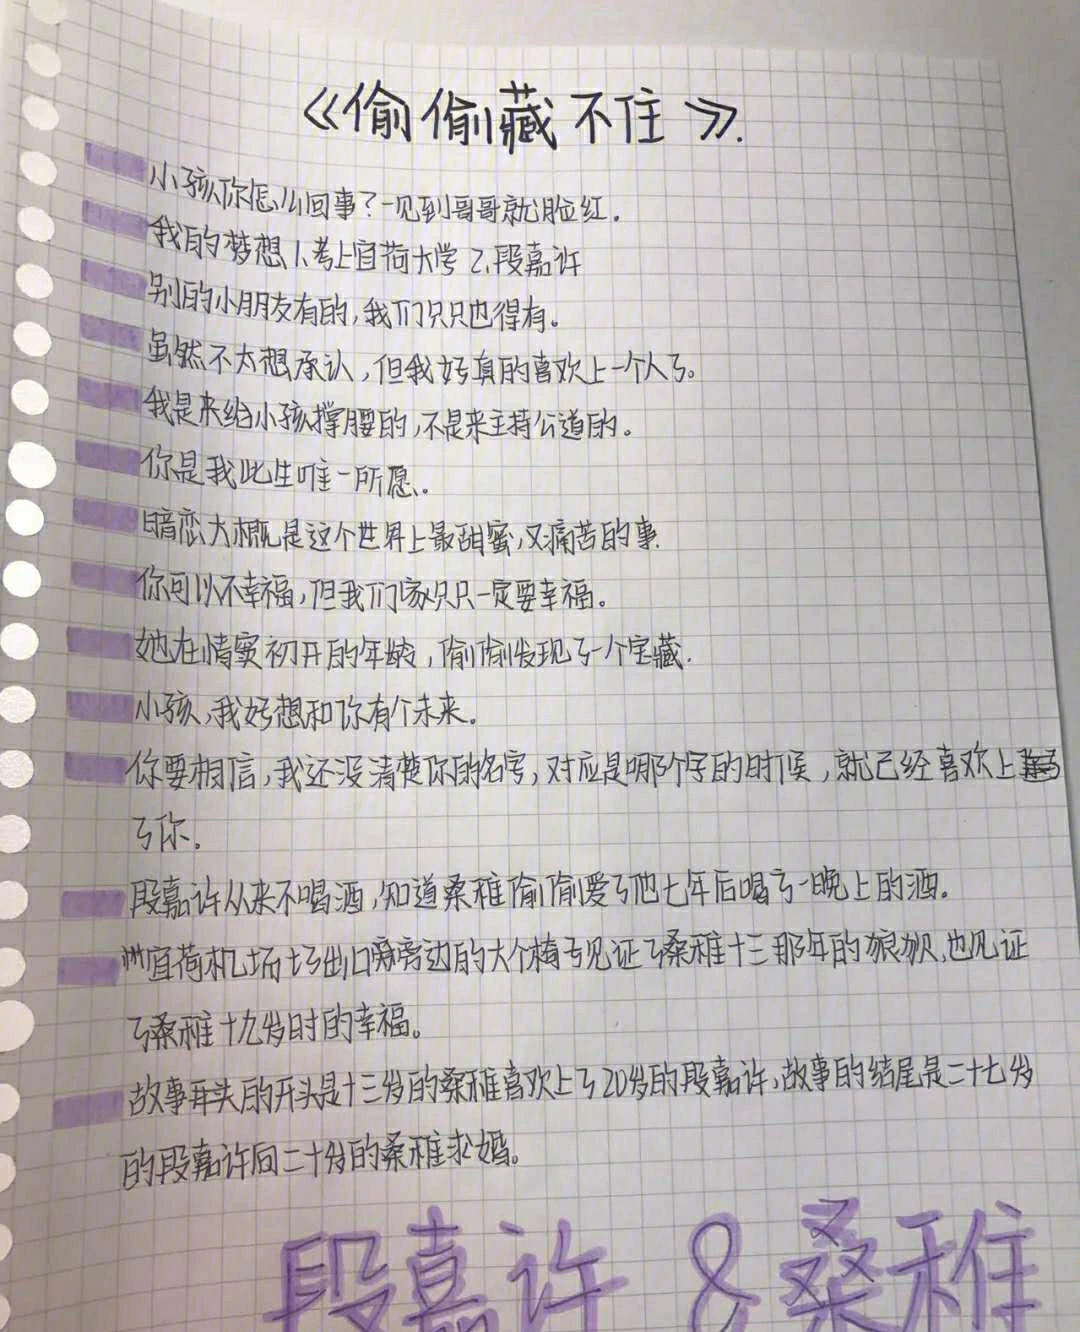 《偷偷藏不住》.
小孩你怎么回事?一见到哥哥就脸红.
我的梦想1、考上宜荷大学 2、段嘉许
别的小朋友有的,我们只只也得有。
虽然不太想承认,但我好真的喜欢上一个人了。
我是来给小孩撑腰的,不是来主持公道的。
你是我此生唯一所愿.
暗恋大概是这个世界上最甜蜜,又痛苦的事.
你可以不幸福,但我们家只只一定要幸福。
她在情窦初开的年龄,偷偷发现了一个宝藏.
小孩,我好想和你有个未来。
你要相信,我还没清楚你的名字,对应是哪个字的时候,就已经喜欢上
了你.
段嘉许从来不喝酒,知道桑稚偷偷爱了他七年后喝了一晚上的酒.
宜荷机场出口旁边的大个椅子见证了桑稚十三那年的狼狈,也见证
了桑稚十九岁时的幸福。
故事开头的开头是十三岁的桑稚喜欢上了20岁的段嘉许,故事的结尾是二十七岁
的段嘉许向二十岁的桑稚求婚。
段嘉许&桑稚